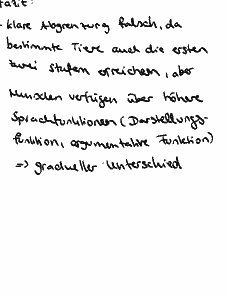 Fazit:
- klare Abgrenzung falsch, da
bestimmte Tiere auch die ersten
zwei Stufen erreichen, aber
Menschen verfügen über höhere
Sprachfunktionen (Darstellungs-
funktion, argumentative Funktion)
=> gradueller Unterschied